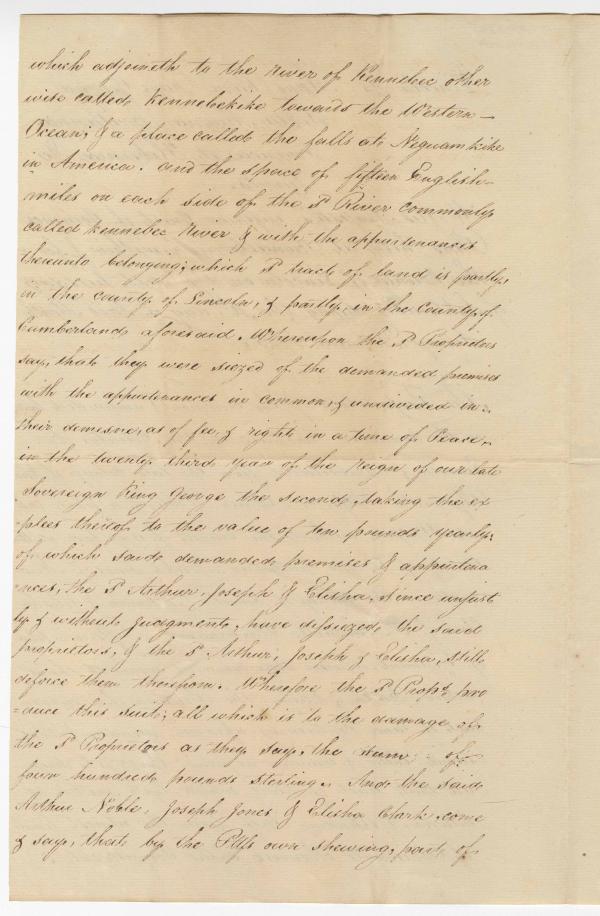 which adjoineth to the River of Kennebec other
wise called Kennebekike towards the Western
Ocean; & a place called the falls at Neguamkike
in America. and the space of fifteen English
miles on each side of the sd River commonly
called Kennebec River & with the appurtenances
thereunto belonging; which sd tract of land is partly,
in the county of Lincoln, & partly, in the County of
Cumberland aforesaid. Whereupon the sd Proprietors
say, that they were siezed of the demanded premises
with the appurtenances in common, & undivided in
their demesne, as of fee, & right, in a time of Peace,
in the twenty third year of the reign of our late
Sovereign King George the second, taking the ex
plees thereof to the value of ten pounds yearly;
of which said demanded premises & appurtena
nces, the sd Arthur, Joseph & Elisha, since unjust
ly & without judegment, have disseized the said
proprietors, & the sd Arthur, Joseph & Elisha, still
deforce them therefrom. Wherefore the sd Proprs. pro
=duce this suit; all which is to the damage of
the sd Proprietors as they say, the sum of
four hundred pounds sterling. And the said
Arthur Noble, Joseph Jones & Elisha Clark come
& say, that by the Plfs own shewing, part of